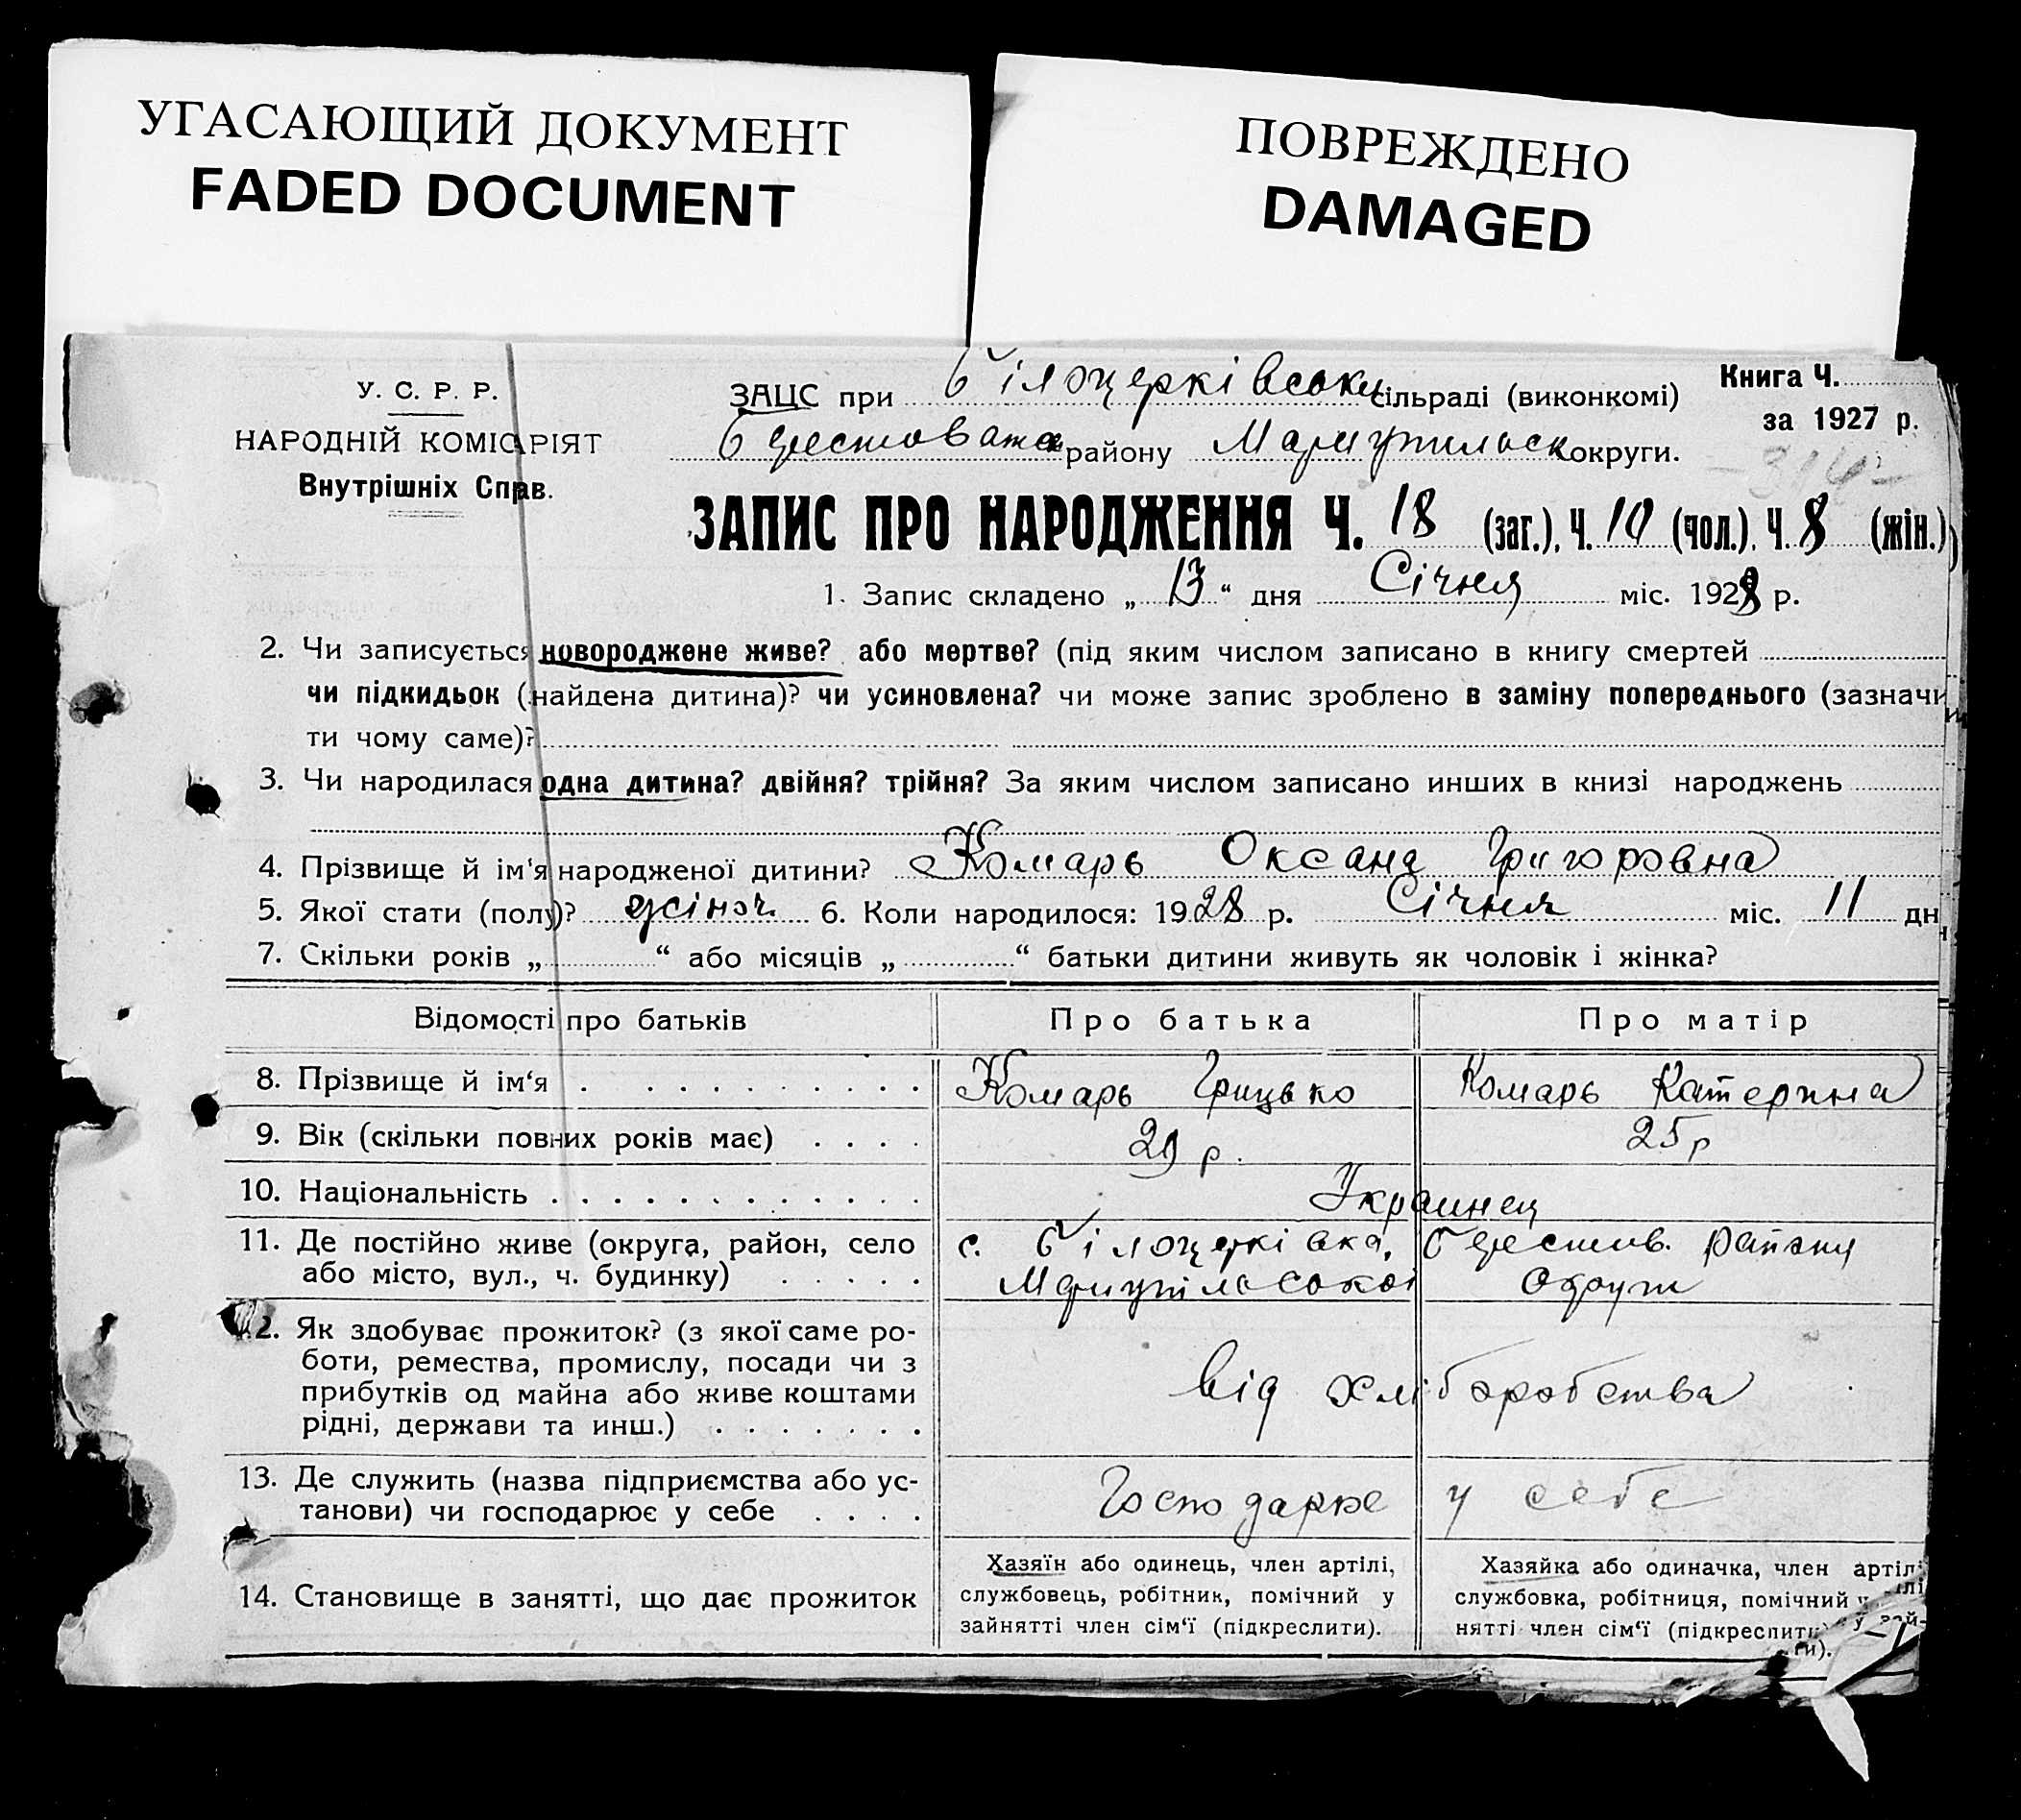 УГАСАЮЩИЙ ДОКУМЕНТ
FADED DOCUMENT
ПОВРЕЖДЕНО
DAMAGED
У. С. Р. Р.
НАРОДНІЙ КОМІСАРІЯТ
Внутрішніх Справ.
ЗАЦС при Білоцерківськи сільраді (виконкомі)
Берестовата району Мариупильськ округи.
Книга Ч.
за 1927 р.
ЗАПИС ПРО НАРОДЖЕННЯ Ч. 18 (заг.), Ч. 10 (чол.), Ч. 8 (жін.)
1. Запис складено „ 13 “ дня Січня міс. 1928 р.
2. Чи записується новороджене живе? або мертве? (під яким числом записано в книгу смертей
чи підкидьок (найдена дитина)? чи усиновлена? чи може запис зроблено в заміну попереднього (зазначи
ти чому саме)?
3. Чи народилася одна дитина? двійня? трійня? За яким числом записано инших в книзі народжень
4. Прізвище й ім‘я народженої дитини? Комарь Оксана Григоровна
5. Якої стати (полу)? жіноч. 6. Коли народилося: 1928 р. Січня міс. 11 дн
7. Скільки років „ “ або місяців „ “ батьки дитини живуть як чоловік і жінка?
Відомості про батьків Про батька Про матір
8. Прізвище й ім‘я Комарь Грицько Комарь Катерина
9. Вік (скільки повних років має) 29 р. 25 р
10. Національність Украинец
11. Де постійно живе (округа, район, село с. Білоцерківка, Берестов. району
або місто, вул., ч. будинку) Мариупільської округи
12. Як здобуває прожиток? (з якої саме ро-
боти, ремества, промислу, посади чи з
прибутків од майна або живе коштами від хліборобства
рідні, держави та инш.)
13. Де служить (назва підприємства або ус-
танови) чи господарює у себе Господарює у себе
14. Становище в занятті, що дає прожиток
Хазяїн або одинець, член артілі,
службовець, робітник, помічний у
зайнятті член сім‘ї (підкреслити).
Хазяйка або одиначка, член артіл
службовка, робітниця, помічний
нятті член сім‘ї (підкреслити)